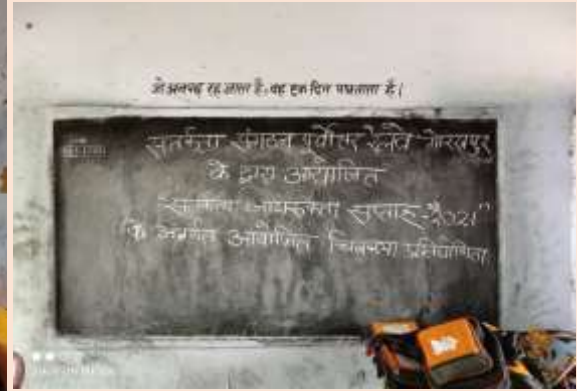 जो अनपढ़ रह जाता है, वह एक दिन पछताता है।
सतर्कता संगठन पूर्वोत्तर रेलवे गोरखपुर
के द्वारा आयोजित
सतर्कता जागरूकता सप्ताह-2021"
के अन्तर्गत आयोजित चित्रकला प्रतियोगिता